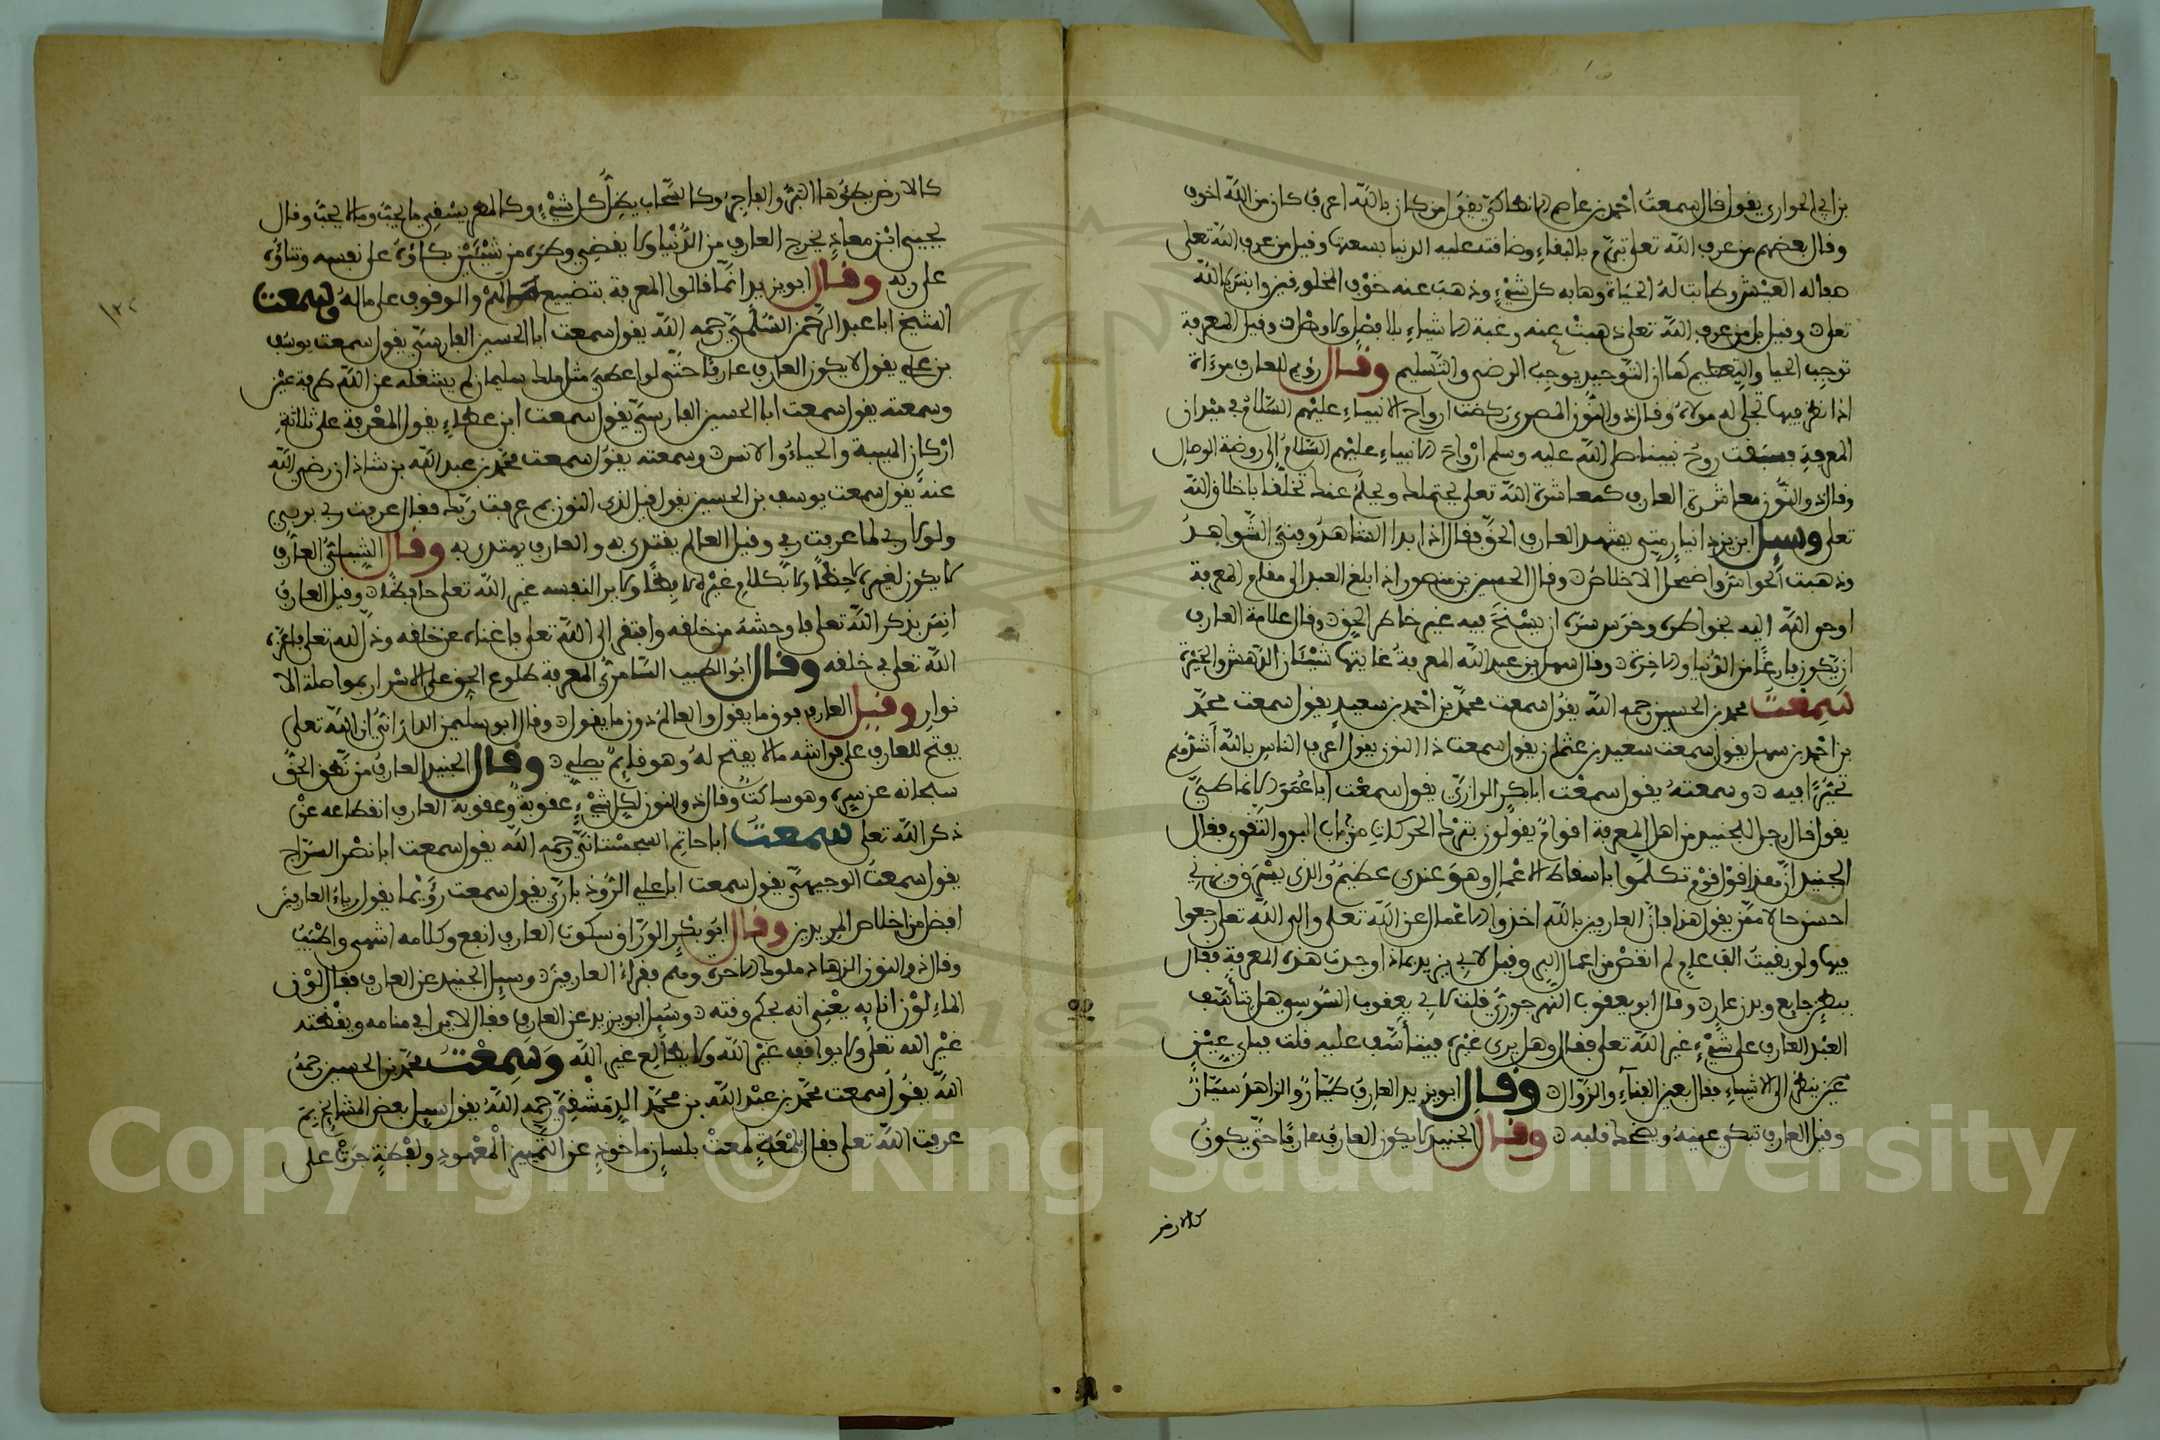 بن ابي الحواري يقول قال سمعت احمد بن عاصم الانطاكي يقول من كان بالله اعرف كان من الله اخوف
وقال بعضهم من عرف الله تعلى تبرم بالبقاء وضاقت عليه الدنيا بسعتها وقيل من عرف الله تعلى
صفا له العيش وطابت له الحياة وهابه كل شيء وذهب عنه خوف المخلوقين وانس بالله
تعلى وقيل بل من عرف الله تعلى ذهبت عنه رغبة الاشياء بلا فصل ولا وصل وقيل المعرفة
توجب الحيا والتعظيم كما ان التوحيد يوجب الرضى والتسليم وقال رويم للعارف مرءاة
اذا نظر فيها تجلى له مولاه وقال ذو النون المصري ركضت ارواح الانبياء عليهم السلام في ميدان
المعرفة فسبقت روح نبينا صلى الله عليه وسلم ارواح الانبياء عليهم السلام الى روضة الوصال
وقال ذو النون معاشرة العارف كمعاشرة الله تعلى يحتملك ويحلم عنك تخلقا باخلاق الله
تعلى وسيل ابن يزدانيار متى يشهد العارف الحق فقال اذا بدا الشاهد وفني الشواهد
وذهبت الحواس واضمحل الاخلاص وقال الحسين بن منصور اذا بلغ العبد الى مقام المعرفة
اوحى الله اليه بخواطره وحرس سره ان يسنح فيه غير خاطر الحق وقال علامة العارف
ان يكون فارغا من الدنيا والاخرة وقال سهل بن عبد الله المعرفة غايتها شيئان الدهش والحيرة
سمعت محمد بن الحسين رحمه الله يقول سمعت محمد بن احمد بن سعيد يقول سمعت محمد
بن احمد بن سهل يقول سمعت سعيد بن عثمان يقول سمعت ذا النون يقول اعرف الناس بالله أشدهم
تحيرا فيه وسمعته يقول سمعت ابا بكر الرازي يقول سمعت ابا عمر الانماطي
يقول قال رجل للجنيد من اهل المعرفة اقوام يقولون بترك الحركات من باب البر والتقوى فقال
الجنيد ان هذا قول قوم تكلموا باسقاط الاعمال وهو عندي عظيم والذي يسرق ويزني
احسن حالا ممن يقول هذا فان العارفين بالله اخذوا الاعمال عن الله تعلى والى الله تعلى رجعوا
فيها ولو بقيت الف عام لم انقص من اعمال البر وقيل لابي يزيد بماذا وجدت هذه المعرفة فقال
ببطن جايع وبدن عار وقال ابو يعقوب النهرجوري قلت لابي يعقوب السوسي هل يتأسف
العبد العارف على شيء غير الله تعلى فقال وهل يرى غيره فيتأسف عليه قلت فبأي عين
ينظر الى الاشياء فقال بعين الفناء والزوال وقال ابو يزيد العارف طيار والزاهد سيار
وقيل العارف تبكي عينه ويضحك قلبه وقال الجنيد لا يكون العارف عارفا حتى يكون
كالارض
كالارض يطؤها البر والفاجر وكالسحاب يظل كل شيء وكالمطر يسقي ما يحب وما لا يحب وقال
يحيى ابن معاذ يخرج العارف من الدنيا ولا يقضي وطره من شيئين بكاؤه على نفسه وثناؤه
على ربه وقال ابو يزيد انما نالوا المعرفة بتضييع ما لهم والوقوف على ماله وسمعت
الشيخ ابا عبد الرحمن السلمي رحمه الله يقول سمعت ابا الحسين الفارسي يقول سمعت يوسف
بن علي يقول لا يكون العارف عارفا حتى لو اعطي مثل ملك سليمان لم يشغله عن الله طرفة عين
وسمعته يقول سمعت ابا الحسين الفارسي يقول سمعت ابن عطاء يقول المعرفة على ثلاثة
اركان الهيبة والحياء والانس وسمعته يقول سمعت محمد بن عبد الله بن شاذان رضي الله
عنه يقول سمعت يوسف بن الحسين يقول قيل لذي النون بم عرفت ربك فقال عرفت ربي بربي
ولولا ربي لما عرفت ربي وقيل العالم يقتدى به والعارف يهتدى به وقال الشبلي العارف
لا يكون لغيره لاحظا ولا بكلام غيره لافظا ولا يرى لنفسه غير الله تعلى حافظا وقيل العارف
انس بذكر الله تعلى فاوحشه من خلقه وافتقر الى الله تعلى فاغناه عن خلقه وذل لله تعلى فاعزه
الله تعلى في خلقه وقال ابو الطيب السامري المعرفة طلوع الحق على الاسرار بمواصلة الا
نوار وقيل العارف فوق ما يقول والعالم دون ما يقول وقال ابو سليمن الداراني ان الله تعلى
يفتح للعارف على فراشه ما لا يفتح له وهو قايم يصلي وقال الجنيد العارف من نطق الحق
سبحانه عن سره وهو ساكت وقال ذو النون لكل شيء عقوبة وعقوبة العارف انقطاعه عن
ذكر الله تعلى سمعت ابا حاتم السجستاني رحمه الله يقول سمعت ابا نصر السراج
يقول سمعت الوجيهي يقول سمعت ابا علي الروذباري يقول سمعت رويما يقول رياء العارفين
افضل من اخلاص المريدين وقال ابو بكر الوراق سكوت العارف انفع وكلامه اشهى واطيب
وقال ذو النون الزهاد ملوك الاخرة وهم فقراء العارفين وسيل الجنيد عن العارف فقال لون
الماء لون انايه يعني انه بحكم وقته وسيل ابو يزيد عن العارف فقال لا يرا في منامه ويقظته
غير الله تعلى ولا يوافق غير الله ولا يطالع غير الله وسمعت محمد بن الحسين رحمه
الله يقول سمعت محمد بن عبد الله بن محمد الدمشقي رحمه الله يقول سيل بعض المشايخ بم
عرفت الله تعلى فقال بلمعة لمعت بلسان ماخوذ عن التمييز المعهود ولفظة جرت على
١٢٤
Copyright © King Saud University
1957